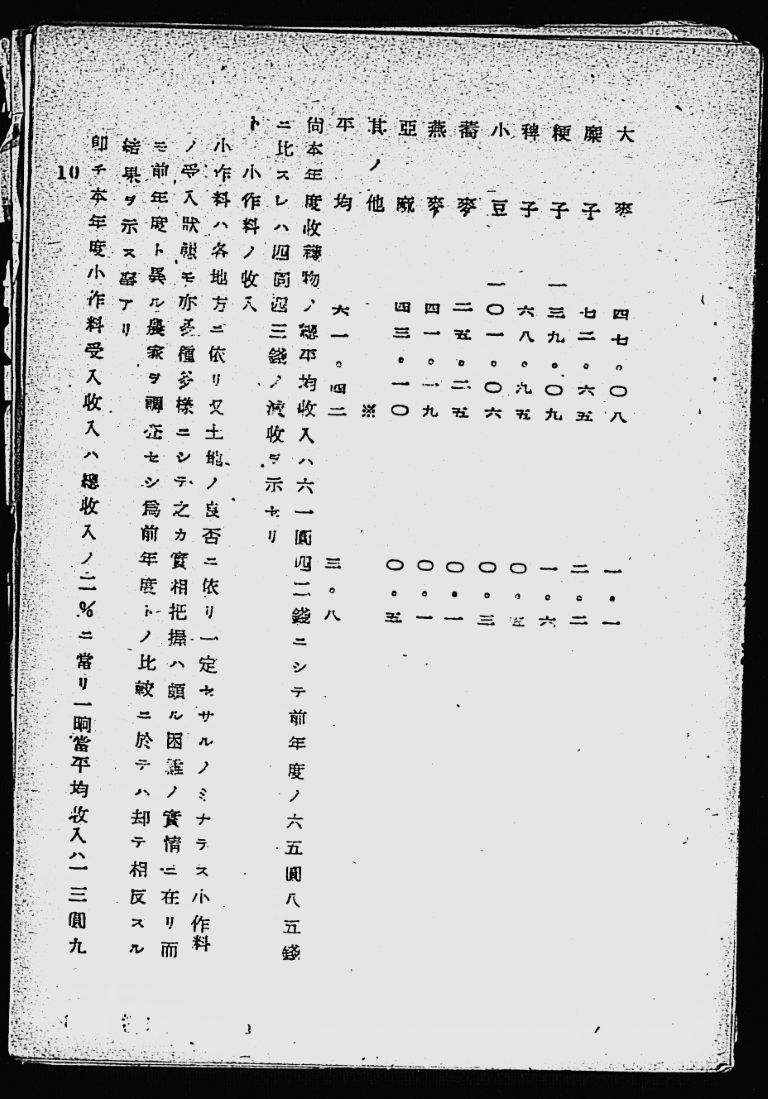 大麥 四七。〇八 一。一
糜子 七二。六五 二。二
粳子 一三九。〇九 一。六
稗子 六八。九五 〇。五
小豆 一〇一。〇六 〇。三
蕎麥 二五。二五 〇。一
燕麥 四一。一九 〇。一
亞麻 四三。一〇 〇。五
其ノ他 ※
平均 六一。四二 三。八
尙本年度收穫物ノ總平均收入ハ六一圓四二錢ニシテ前年度ノ六五圓八五錢
ニ比スレハ四圓四三錢ノ減收ヲ示セリ
ト 小作料ノ收入
小作料ハ各地方ニ依リ又土地ノ良否ニ依リ一定セサルノミナラス小作料
ノ受入狀態モ亦多種多樣ニシテ之カ實相把握ハ頗ル困難ノ實情ニ在リ而
モ前年度ト異ル農家ヲ調査セシ爲前年度トノ比較ニ於テハ却テ相反スル
結果ヲ示ス嵩アリ
卽チ本年度小作料受入收入ハ總收入ノ二％ニ當リ一晌當平均收入ハ一三圓九
10